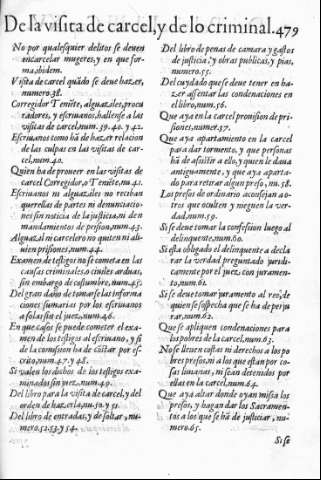 De la visita de carcel, y de lo criminal. 479
No por qualesquier delitos se deuen
encarcelar mugeres, y en que for-
ma, ibidem.
Visita de carcel quãdo se deue hazer,
numero.38.
Corregidor Teniẽte, alguaziles, procu
radores, y escriuanos, hallense a las
visitas de carcel, num.39.40. y 42.
Escriuanos como hã de hazer relacion
de las culpas en las visitas de car-
cel, num.40.
Quien ha de proueer en las visitas de
carcel Corregidor, o Teniẽte, nu.41.
Escriuanos ni alguaziles no reciban
querellas de partes ni denunciacio-
nes sin noticia de la justicia, ni den
mandamientos de prision, num.43.
Alguazil ni carcelero no quiten ni ali-
uien prisiones, num.44.
Examen de testigos no se cometa en las
causas criminales, o ciuiles arduas,
sin embargo de costumbre, num.45.
Del gran daño de tomarse las informa
ciones sumarias por los escriuanos
a solas sin el juez, num.46.
En que casos se puede cometer el exa-
men de los testigos al escriuano, y si
de la comission ha de costar por es-
crito, num.47. y 48.
Si valen los dichos de los testigos exa-
minados sin juez, num.49.
Del libro para la visita de carcel, y del
orden de hazerla, nu.50. y 51.
Del libro de entradas, y de soltar, nu-
mero.52.53. y 54.
Del libro de penas de camara y gastos
de justicia, y obras publicas, y pias,
numero.55.
Del cuydado que se deue tener en ha-
zer assentar las condenaciones en
el libro, num.56.
Que aya en la carcel prouision de pri-
siones, numer.57.
Que aya apartamiento en la carcel
para dar tormento, y que personas
hã de assistir a ello, y quien le daua
antiguamente, y que aya aparta-
do para retraer algun preso, nu.58.
Los presos de ordinario aconsejan ao-
tros que oculten y nieguen la ver-
dad, num.59.
Si se deue tomar la confession luego al
delinquente, num.60.
Si esta obligado el delinquente a decla
rar la verdad preguntado juridi-
camente por el juez con juramen-
to, num.61.
Si se deue tomar juramento al reo, de
quien se sospecha que se ha de perju
rar, num.62.
Que se apliquen condenaciones para
los pobres de la carcel, num.63.
No se lleuen costas ni derechos a los po
bres presos, ni a los que estan por co-
sas liuianas, ni sean detenidos por
ellas en la carcel, num.64.
Que aya altar donde oyan missa los
presos, y hagan dar los Sacramen-
tos a los que se hã de justiciar, nu-
mero.65.
Si se